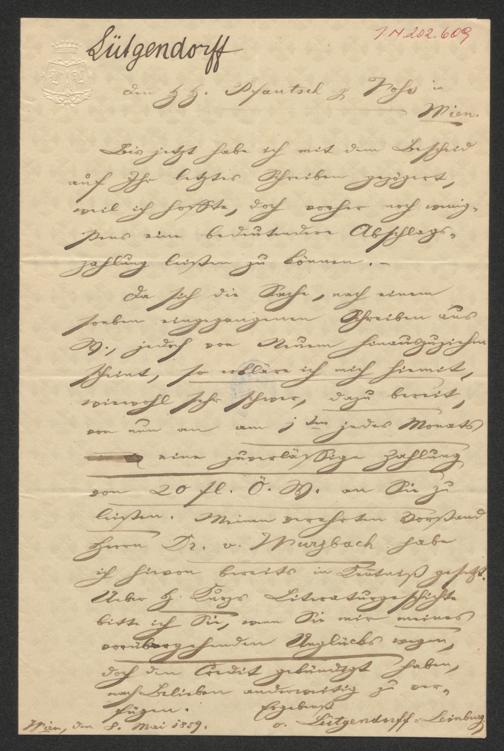 Lütgendorff
I N 202.609
den H H. Pfautsch & Voss in
Wien.
Bis jetzt habe ich mit dem Bescheid
auf Ihr letztes Schreiben gezögert,
weil ich hoffte, doch vorher noch wenig-
stens eine bedeutendere Abschlags-
zahlung leisten zu können. –
Da sich die Sache, nach einem
soeben eingegangenen Schreiben aus
W., jedoch von Neuem hinauszuziehen
scheint, so erkläre ich mich hiemit,
wiewohl sehr schwer, dazu bereit,
von nun an am 1ten jedes Monats
eine zuverlässige Zahlung
von 20 fl. Ö. W. an Sie zu
leisten. Meinen verehrten Vorstand
Herrn Dr. v. Wurzbach habe
ich hievon bereits in Kentniß gesetzt.
Ueber H. Kurz Literaturgeschichte
bitte ich Sie, wen Sie mir meines
vorübergehenden Unglücks wegen,
doch den Credit gekündigt haben,
nach Belieben anderweitig zu ver-
fügen.
Ergebenst
Wien, den 8. Mai 1859.
v. Lütgendorff-Leinburg